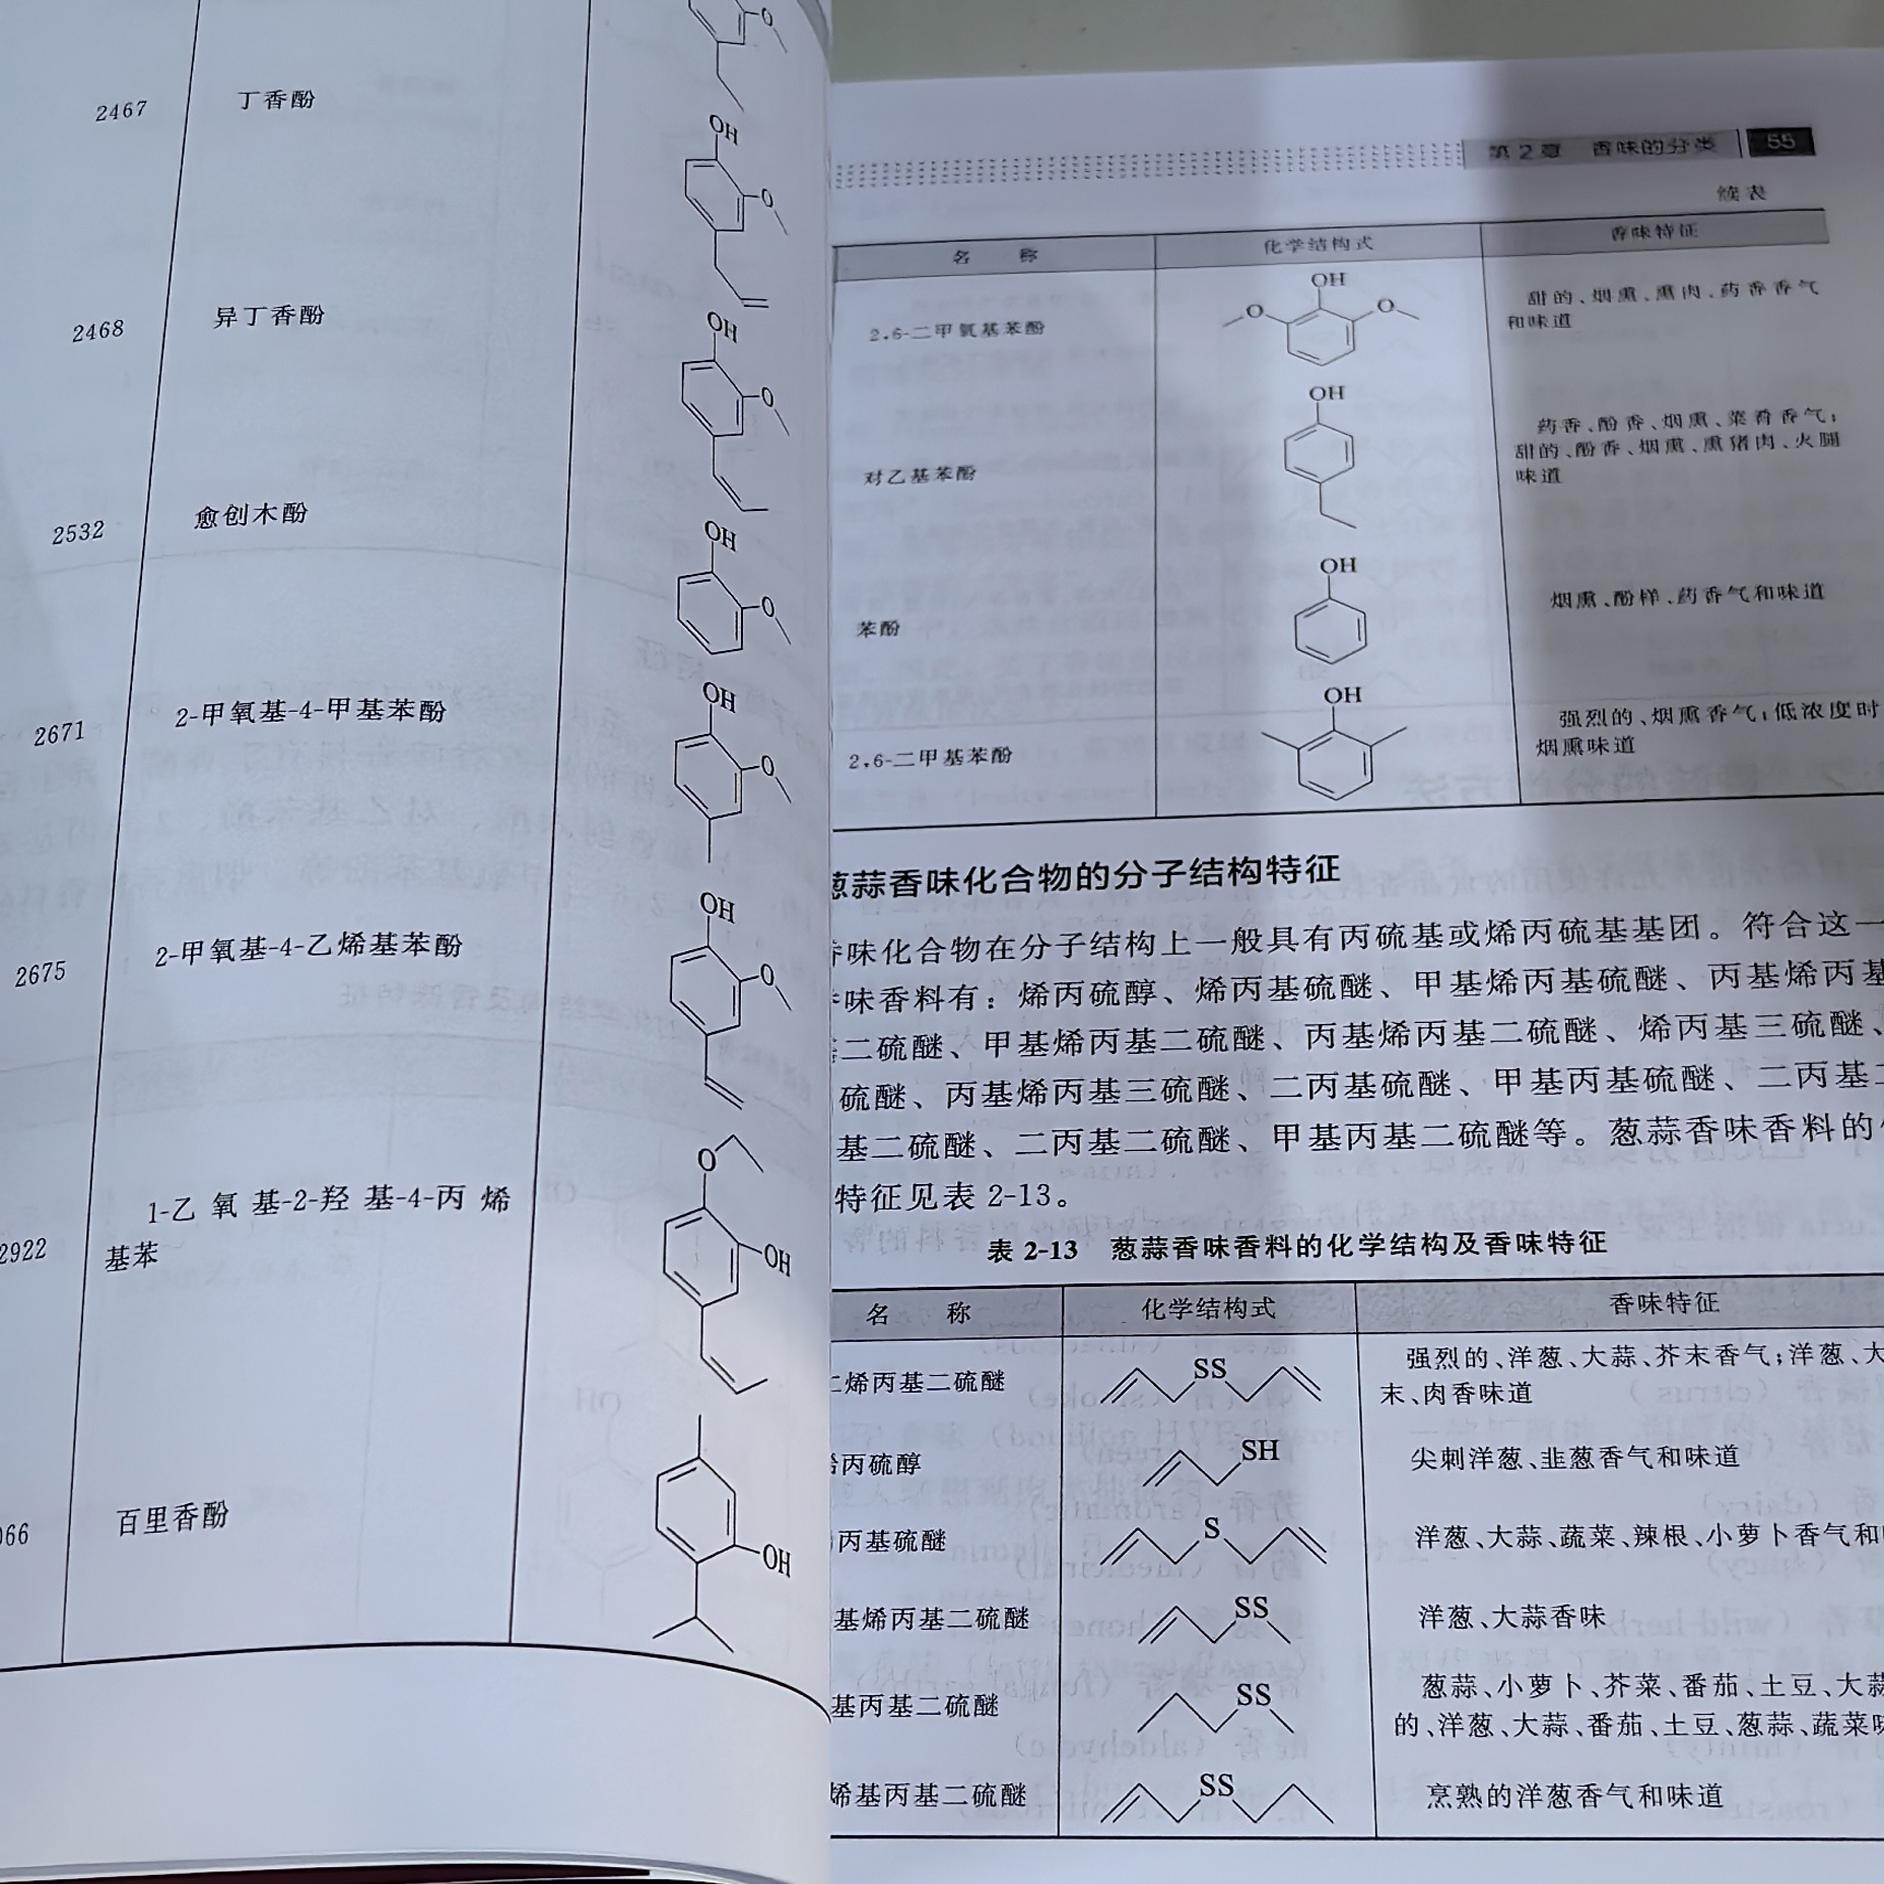 2467 丁香酚
OH
O
2468 异丁香酚
OH
O
2532 愈创木酚
OH
O
2671 2-甲氧基-4-甲基苯酚
OH
O
2675 2-甲氧基-4-乙烯基苯酚
OH
O
2922 1-乙氧基-2-羟基-4-丙烯
基苯
O
OH
066 百里香酚
OH
第2章 香味的分类 55
续表
名 称 化学结构式 香味特征
2,6-二甲氧基苯酚
OH
O O
甜的、烟熏、熏肉、药香香气
和味道
对乙基苯酚
OH
药香、酚香、烟熏、菜肴香气;
甜的、酚香、烟熏、熏猪肉、火腿
味道
苯酚
OH
烟熏、酚样、药香气和味道
2,6-二甲基苯酚
OH
强烈的、烟熏香气;低浓度时
烟熏味道
葱蒜香味化合物的分子结构特征
味化合物在分子结构上一般具有丙硫基或烯丙硫基基团。符合这一
味香料有：烯丙硫醇、烯丙基硫醚、甲基烯丙基硫醚、丙基烯丙基
二硫醚、甲基烯丙基二硫醚、丙基烯丙基二硫醚、烯丙基三硫醚、
硫醚、丙基烯丙基三硫醚、二丙基硫醚、甲基丙基硫醚、二丙基
基二硫醚、二丙基二硫醚、甲基丙基二硫醚等。葱蒜香味香料的
特征见表 2-13。
表 2-13 葱蒜香味香料的化学结构及香味特征
名 称 化学结构式 香味特征
烯丙基二硫醚 SS 强烈的、洋葱、大蒜、芥末香气;洋葱、大
末、肉香味道
丙硫醇 SH 尖刺洋葱、韭葱香气和味道
丙基硫醚 S 洋葱、大蒜、蔬菜、辣根、小萝卜香气和
基烯丙基二硫醚 SS 洋葱、大蒜香味
基丙基二硫醚 SS 葱蒜、小萝卜、芥菜、番茄、土豆、大蒜
的、洋葱、大蒜、番茄、土豆、葱蒜、蔬菜味
烯基丙基二硫醚 SS 烹熟的洋葱香气和味道